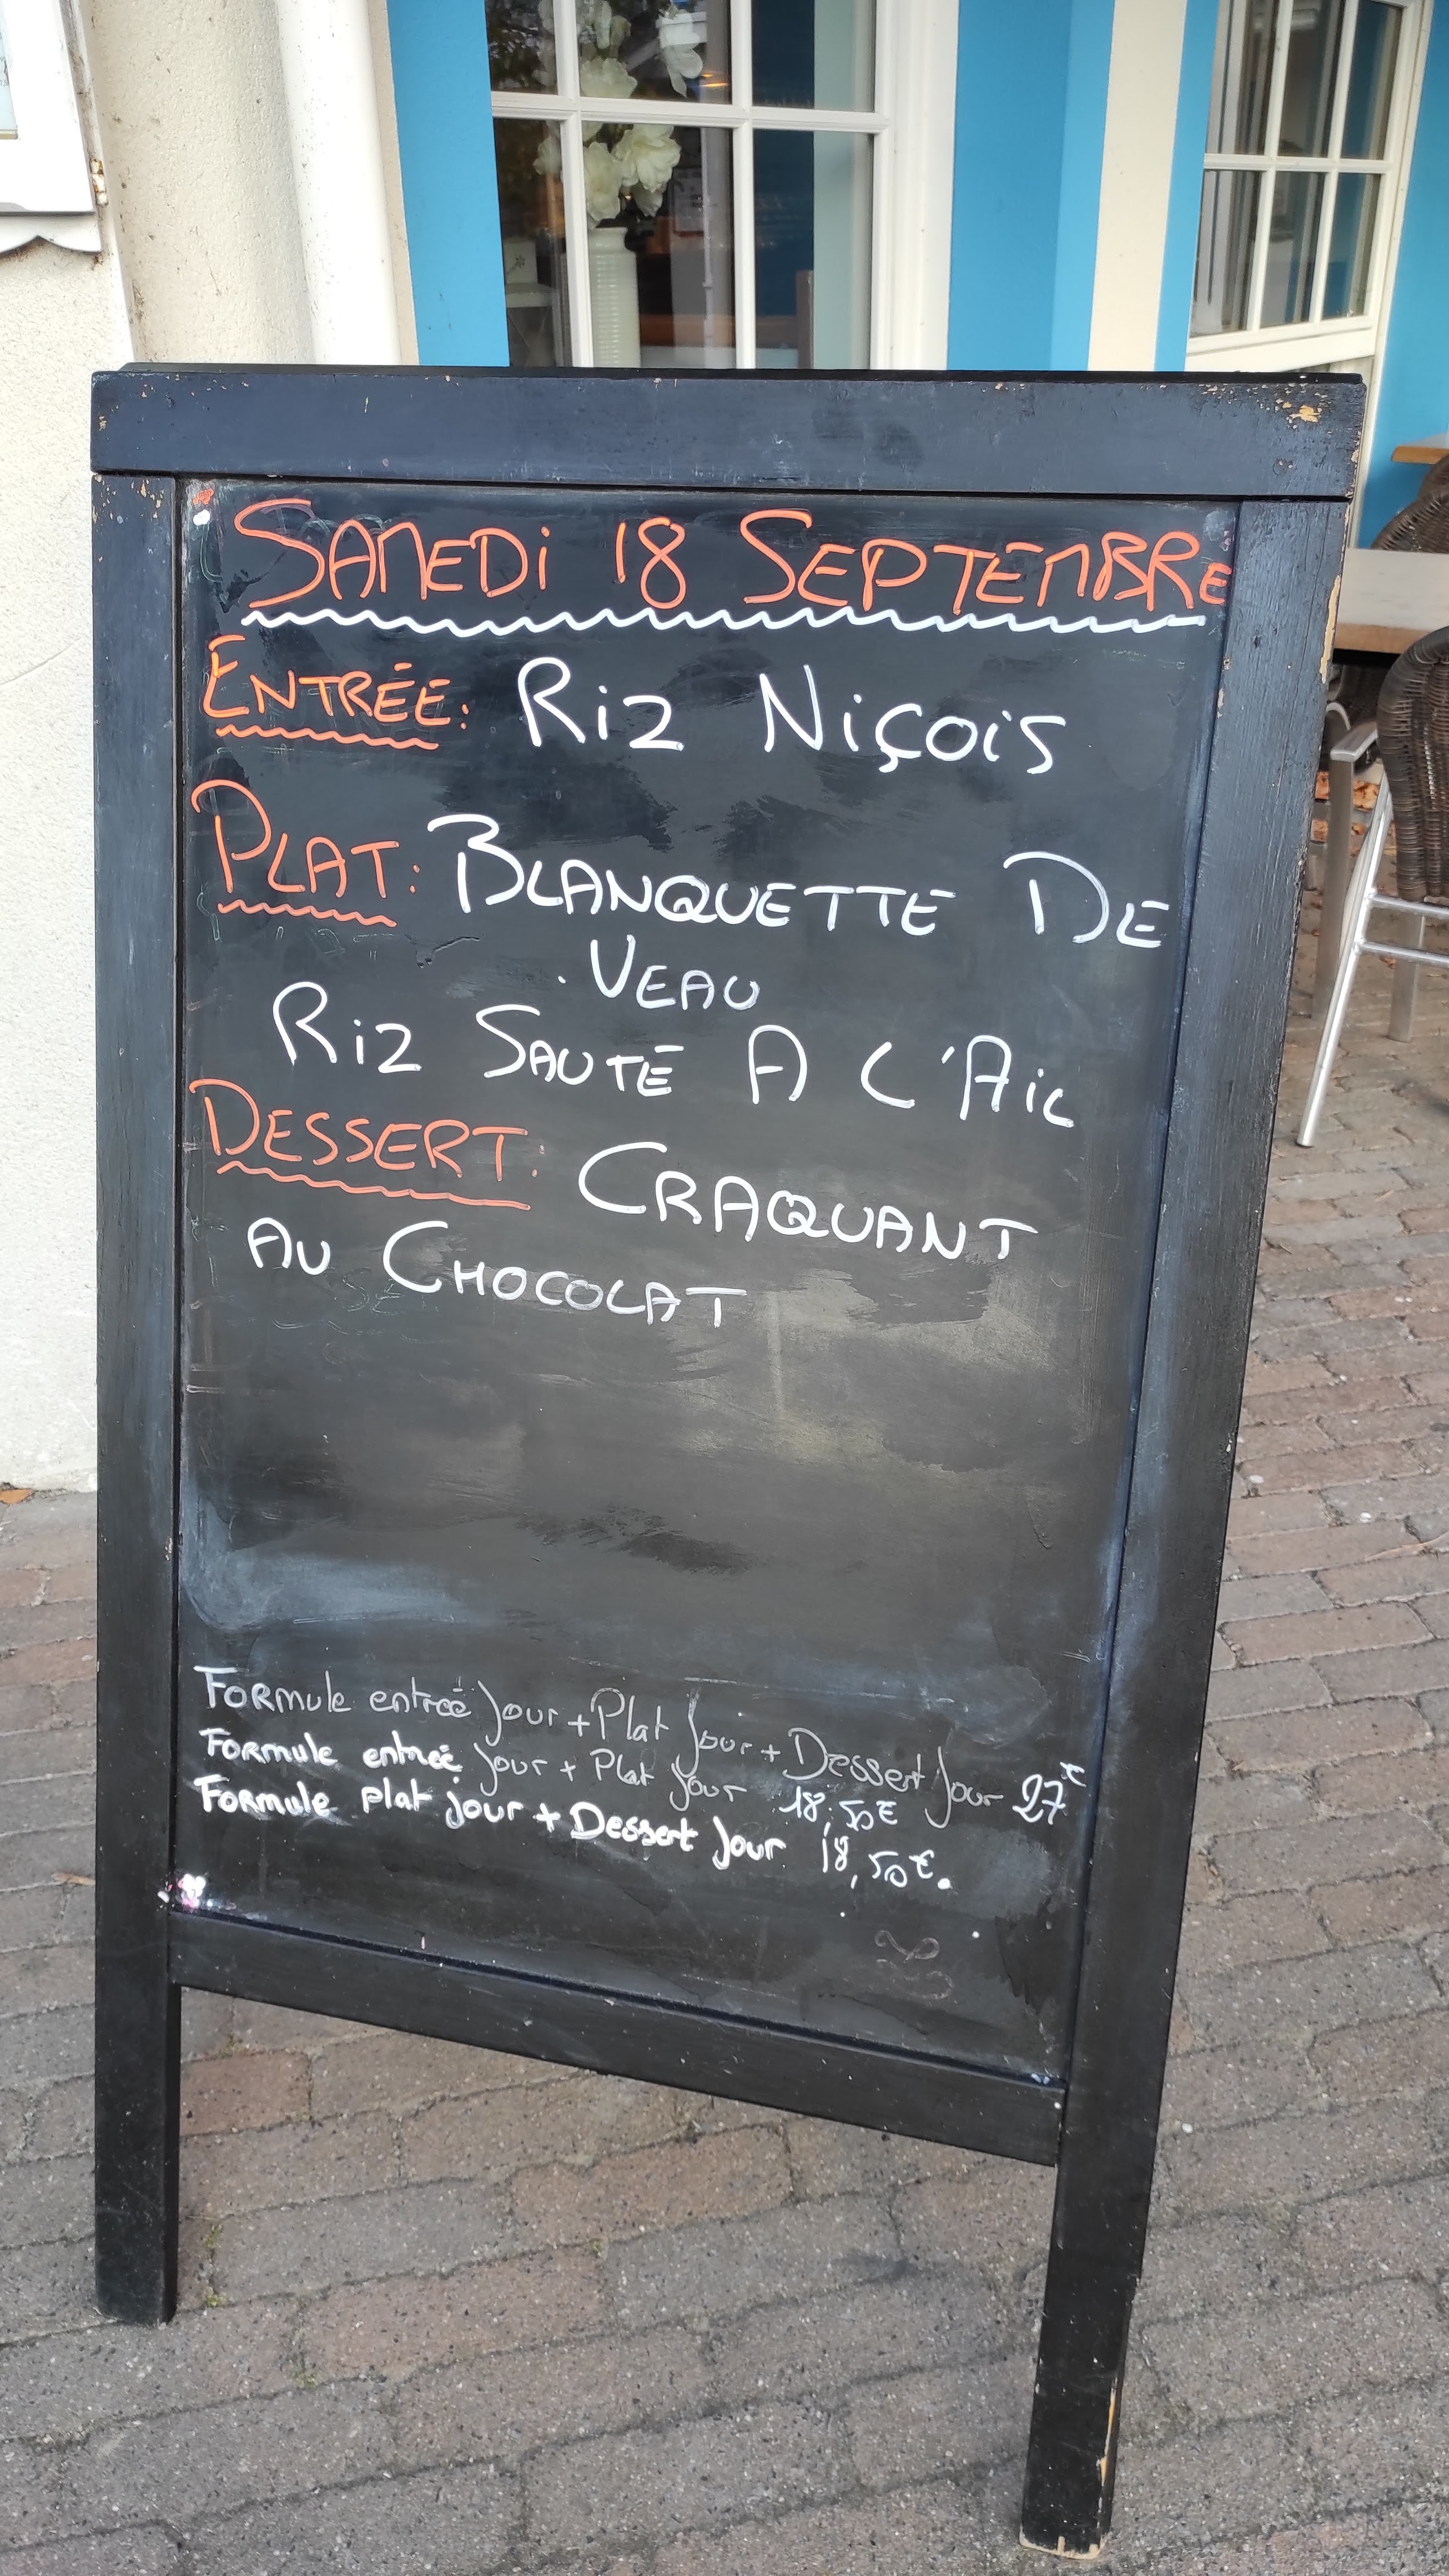 SAMEDi 18 SEPTEMBRE
ENTRÉE: Riz NiÇOiS
PLAT: BLANQUETTE DE
VEAU
Riz SAUTÉ A L'AiL
DESSERT: CRAQUANT
AU CHOCOLAT
Formule entrée Jour + Plat Jour + Dessert Jour 27€
Formule entrée jour + Plat jour 18,50€
Formule plat jour + Dessert Jour 18,50€.